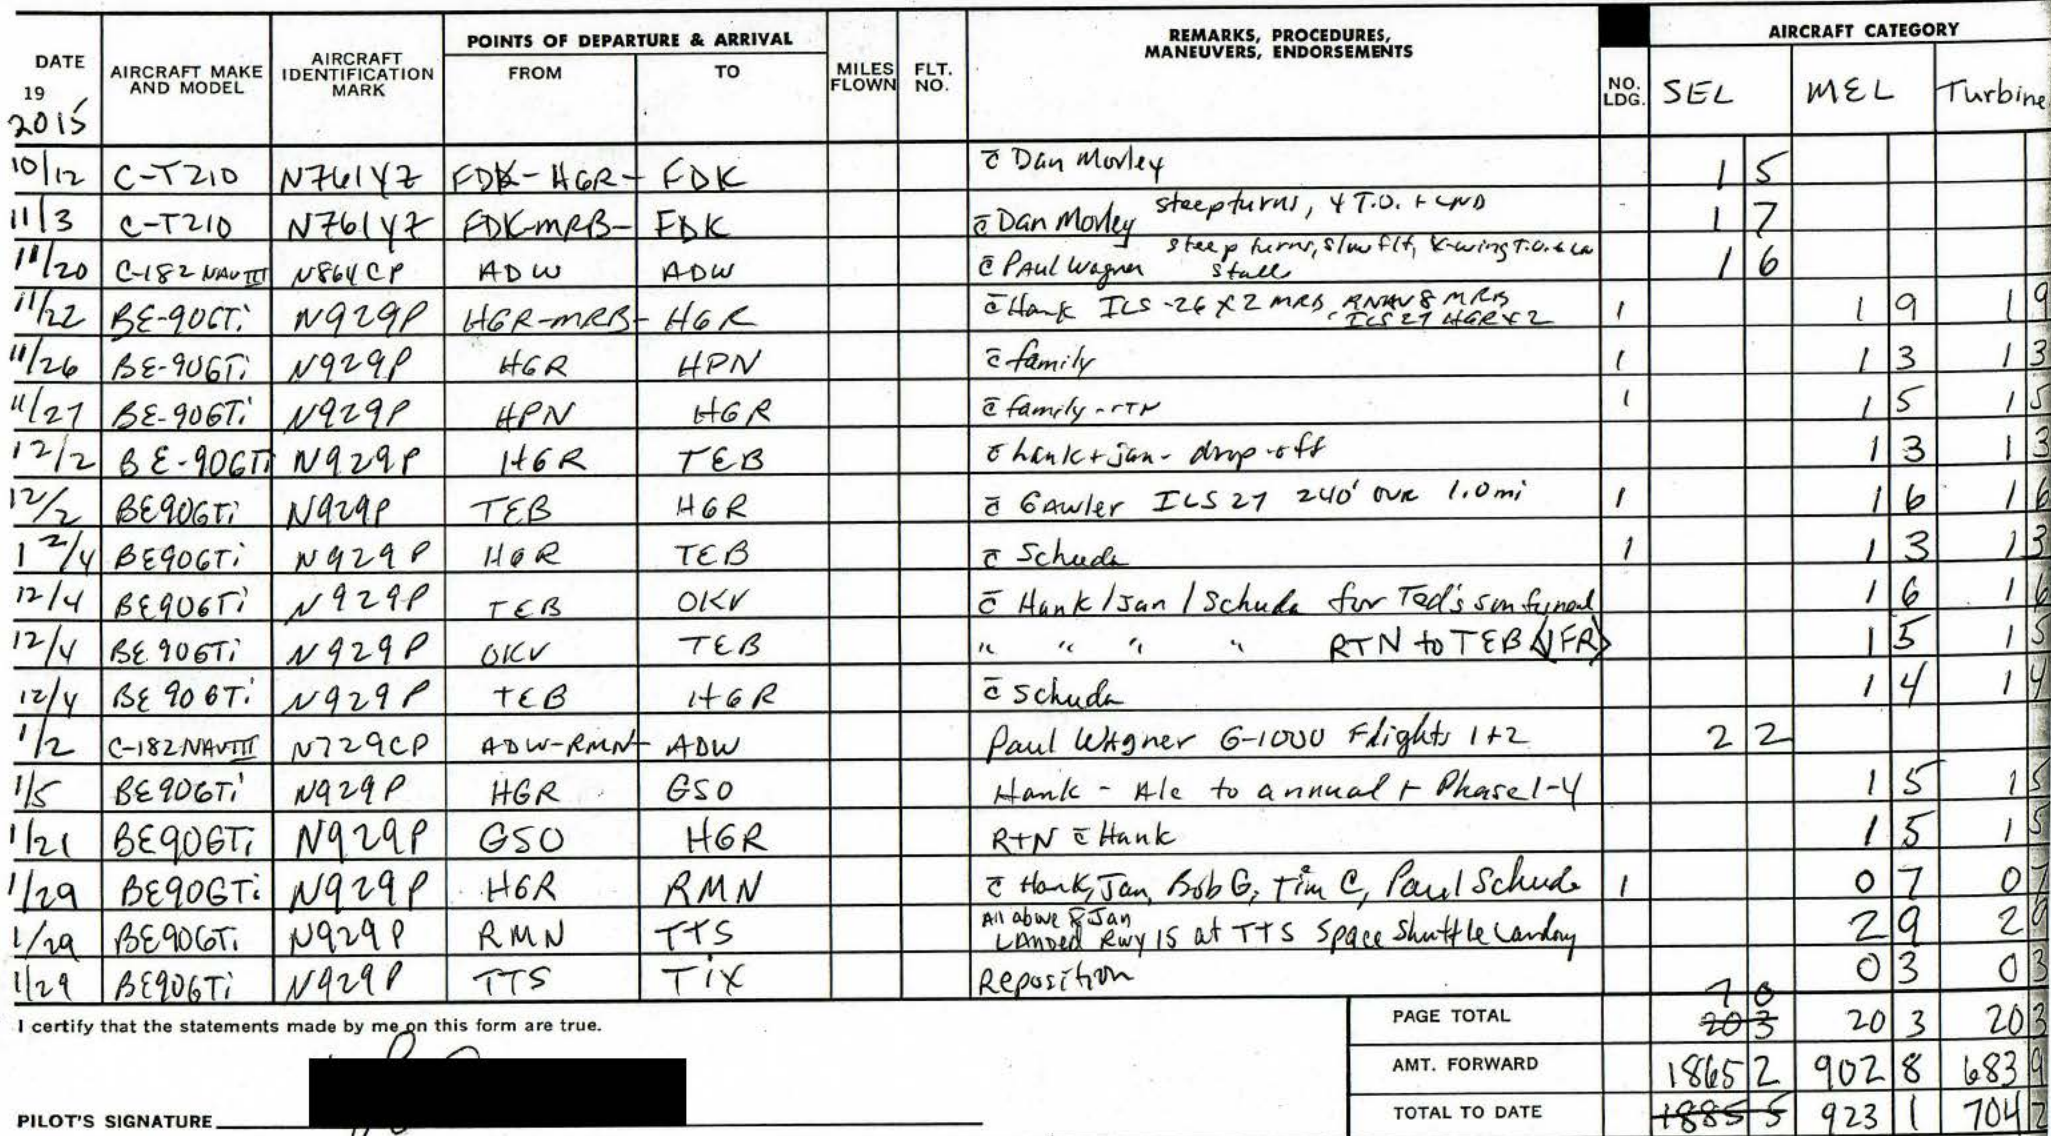 DATE 19 2015 AIRCRAFT MAKE AND MODEL AIRCRAFT IDENTIFICATION MARK POINTS OF DEPARTURE & ARRIVAL FROM TO MILES FLOWN FLT. NO. REMARKS, PROCEDURES, MANEUVERS, ENDORSEMENTS NO. LDG. AIRCRAFT CATEGORY SEL MEL Turbine
10/12 C-T210 N761YZ FDK-HGR- FDK c̄ Dan Morley 1 5
11/3 C-T210 N761YZ FDK-MRB- FDK c̄ Dan Morley steep turns, 4 T.O. + LND 1 7
11/20 C-182 NAVIII N864CP ADW ADW c̄ Paul Wagner steep turns, slow flt, X-wing T.O. & LN stall 1 6
11/22 BE-90GTi N929P HGR-MRB- HGR c̄ Hank ILS-26 X2 MRB, RNAV 8 MRB, ILS 27 HGR X2 1 1 9 1 9
11/26 BE-90GTi N929P HGR HPN c̄ family 1 1 3 1 3
11/27 BE-90GTi N929P HPN HGR c̄ family-RTN 1 1 5 1 5
12/2 BE-90GTi N929P HGR TEB c̄ hank+jan- drop-off 1 3 1 3
12/2 BE90GTi N929P TEB HGR c̄ Gawler ILS 27 240' OVR 1.0mi 1 1 6 1 6
12/4 BE90GTi N929P HGR TEB c̄ Schuda 1 1 3 1 3
12/4 BE90GTi N929P TEB OKV c̄ Hank/Jan/Schuda for Ted's son funeral 1 6 1 6
12/4 BE90GTi N929P OKV TEB " " " " RTN to TEB (IFR) 1 5 1 5
12/4 BE90GTi N929P TEB HGR c̄ Schuda 1 4 1 4
1/2 C-182NAVIII N729CP ADW-RMN- ADW Paul Wagner G-1000 Flights 1+2 2 2
1/5 BE90GTi N929P HGR GSO Hank - A/c to annual + Phase 1-4 1 5 1 5
1/21 BE90GTi N929P GSO HGR RTN c̄ Hank 1 5 1 5
1/29 BE90GTi N929P HGR RMN c̄ Hank, Jan, Bob G, Tim C, Paul Schuda 1 0 7 0 7
1/29 BE90GTi N929P RMN TTS All above & Jan LANDED Rwy 15 at TTS Space Shuttle Landing 2 9 2 9
1/29 BE90GTi N929P TTS TIX Reposition 0 3 0 3
I certify that the statements made by me on this form are true.
PAGE TOTAL 7 0 20 3 20 3 20 3
AMT. FORWARD 1865 2 902 8 683 9
PILOT'S SIGNATURE
TOTAL TO DATE 1885 5 923 1 704 2